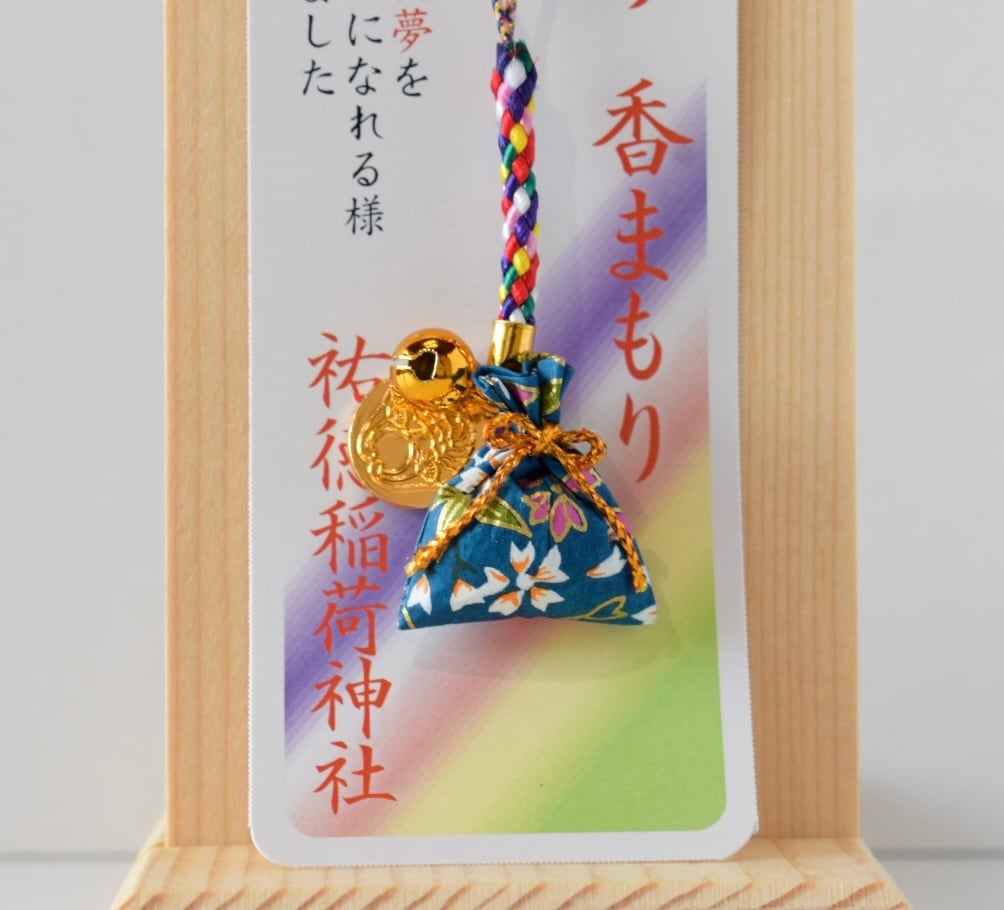 香まもり
夢を
になれる様
した
祐徳稲荷神社